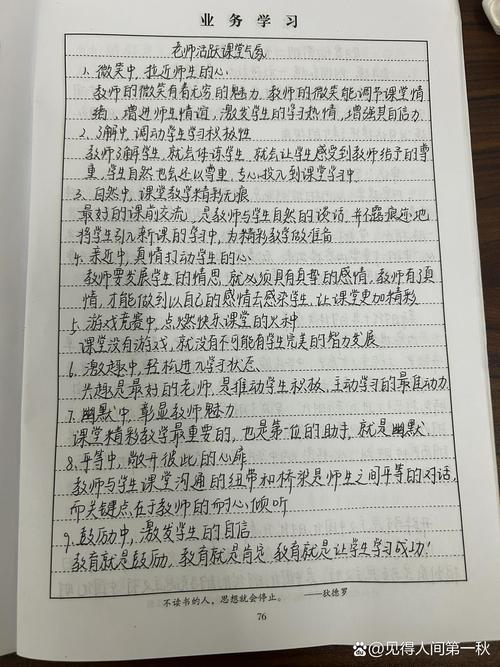 业务学习
老师活跃课堂气氛
1. 微笑中,拉近师生的心
教师的微笑有着无穷的魅力,教师的微笑能调节课堂情
绪,增进师生情谊,激发学生的学习热情,增强其自信力
2. 了解中,调动学生学习积极性
教师了解学生,就会体谅学生,就会让学生感受到教师给予的尊
重,学生自然也会还以尊重,专心投入到课堂学习中
3. 自然中,课堂教学精彩无痕
最好的课前交流,是教师与学生自然的谈话,并不露痕迹地
将学生引入新课的学习中,为精彩教学做准备
4. 亲近中,真情打动学生的心
教师要发展学生的情思,就必须具有真挚的感情,教师有了真
情,才能做到以自己的感情去感染学生,让课堂更加精彩
5. 游戏竞赛中,点燃快乐课堂的火种
课堂没有游戏,就没有不可能有学生完美的智力发展
6. 激趣中,轻松进入学习状态
兴趣是最好的老师,是推动学生积极、主动学习的最佳动力
7. 幽默中,彰显教师魅力
课堂精彩教学最重要的,也是第一位的助手,就是幽默.
8. 平等中,敞开彼此的心扉
教师与学生课堂沟通的纽带和桥梁是师生之间平等的对话,
而关键点在于教师的耐心倾听
9. 鼓励中,激发学生的自信
教育就是鼓励,教育就是肯定,教育就是让学生学习成功!
不读书的人,思想就会停止。 ——狄德罗
76
@见得人间第一秋